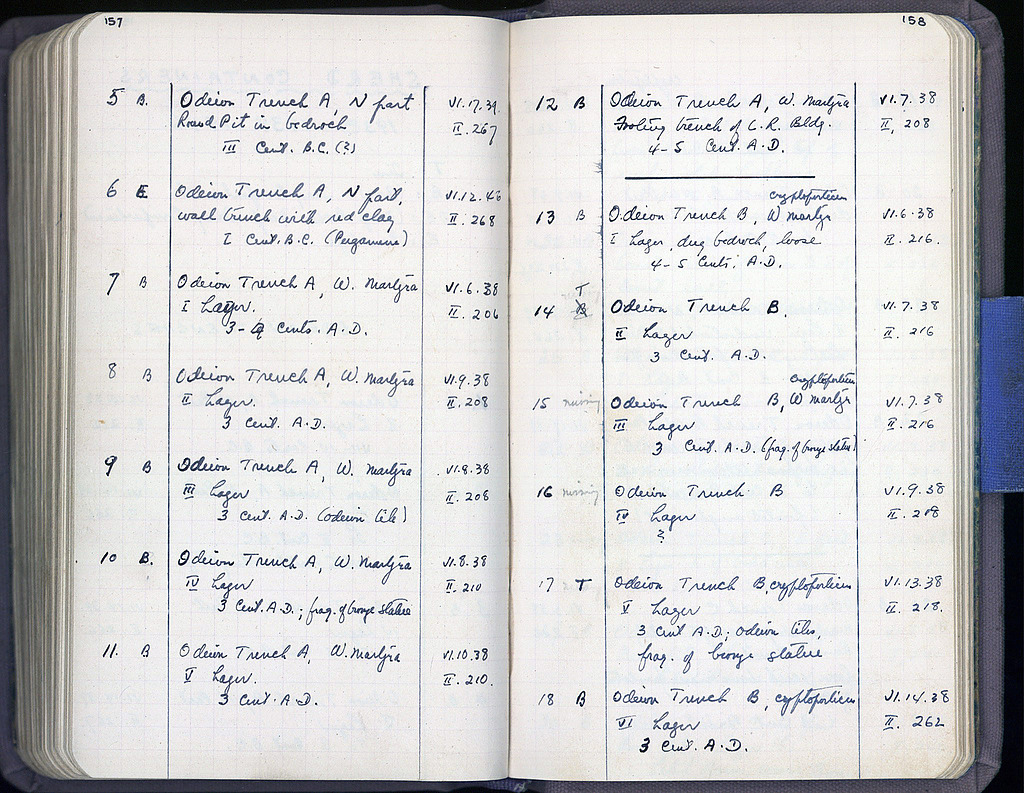 157
5 B. Odeion Trench A, N part VI.17.39.
Round Pit in bedrock II. 267
III Cent. B.C. (?)
6 E Odeion Trench A, N part, VI.12.46
wall trench with red clay II. 268
I Cent. B.C. (Pergamene)
7 B Odeion Trench A, W. Martyra VI.6.38
I Lager. II. 206
3-4 Cents. A.D.
8 B Odeion Trench A, W. Martyra VI.9.38
II Lager. II. 208
3 Cent. A.D.
9 B Odeion Trench A, W. Martyra VI.8.38
III Lager II. 208
3 Cent. A.D. (odeion tile)
10 B. Odeion Trench A, W. Martyra VI.8.38
IV Lager II. 210
3 Cent. A.D.; frag. of bronze statue
11. B Odeion Trench A, W. Martyra VI.10.38
V Lager. II. 210.
3 Cent. A.D.
158
12 B Odeion Trench A, W. Martyra VI.7.38
Footing trench of L.R. Bldg. II, 208
4-5 Cent. A.D.
cryptoporticus
13 B Odeion Trench B, W Martyr VI.6.38
I Lager, dug bedrock, loose II. 216.
4-5 Cents. A.D.
T
14 B Odeion Trench B. VI.7.38
II Lager II. 216
3 Cent. A.D.
cryptoporticus
15 missing Odeion Trench B, W Martyr VI.7.38
III Lager II. 216
3 Cent. A.D. (frag. of bronze statue)
16 missing Odeion Trench B VI.9.38
IV Lager II. 218
?
17 T Odeion Trench B, cryptoporticus VI.13.38
V Lager II. 218.
3 Cent A.D.; odeion tiles,
frag. of bronze statue
18 B Odeion Trench B, cryptoporticus VI.14.38
VI Lager II. 262
3 Cent. A.D.